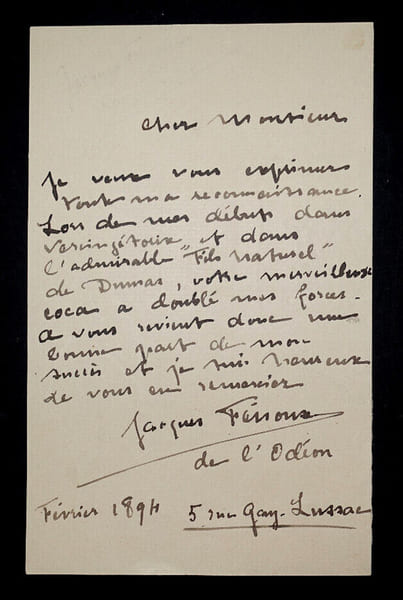 Cher Monsieur
Je veux vous exprimer
toute ma reconnaissance.
Lors de mes débuts dans
Vercingétorix, et dans
l'admirable "Fils Naturel"
de Dumas, votre merveilleuse
coca a doublé mes forces.
A vous revient donc une
bonne part de mon
succès et je suis heureux
de vous en remercier
Jacques Fénoux
de l'Odéon
Février 1894
5 rue Gay-Lussac